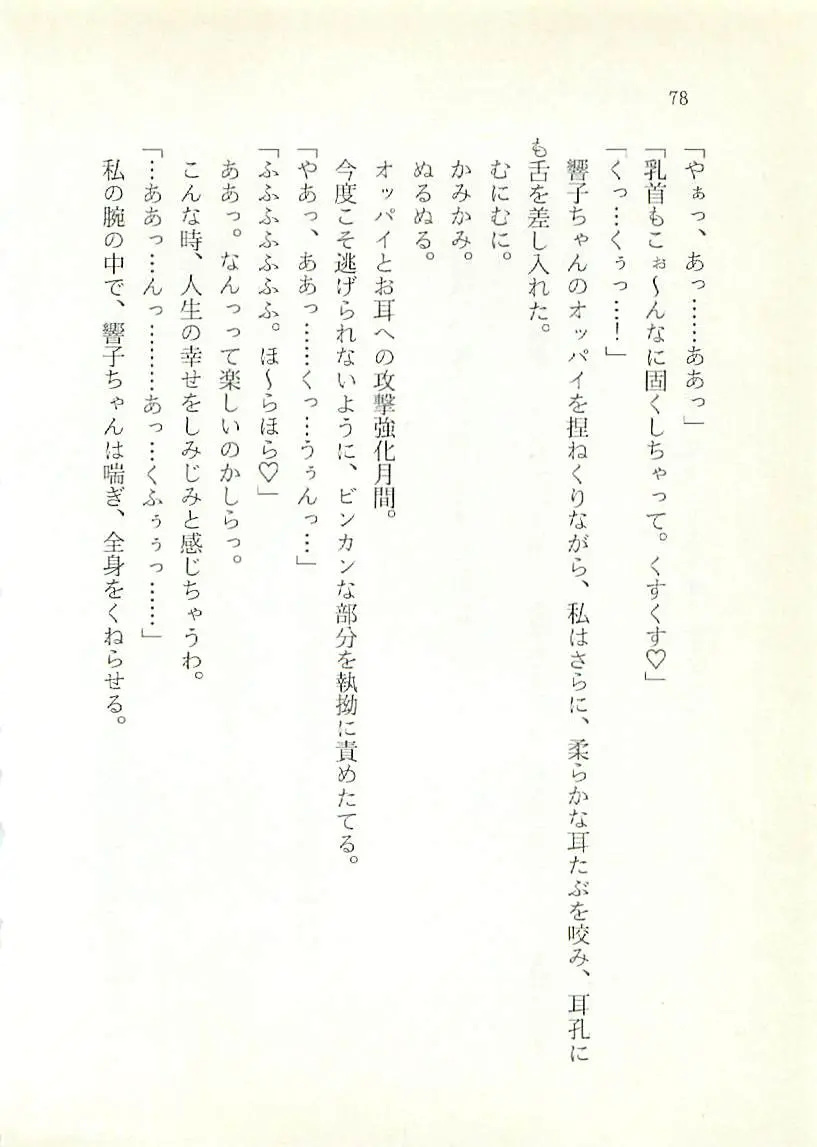 78
「やぁっ、あっ……ああっ」
「乳首もこぉ〜んなに固くしちゃって。くすくす♡」
「くっ…くぅっ…！」
響子ちゃんのオッパイを捏ねくりながら、私はさらに、柔らかな耳たぶを咬み、耳孔に
も舌を差し入れた。
むにむに。
かみかみ。
ぬるぬる。
オッパイとお耳への攻撃強化月間。
今度こそ逃げられないように、ビンカンな部分を執拗に責めたてる。
「やあっ、ああっ……くっ…うぅんっ…」
「ふふふふふふふ。ほ〜らほら♡」
ああっ。なんっって楽しいのかしらっ。
こんな時、人生の幸せをしみじみと感じちゃうわ。
「…ああっ…んっ………あっ…くふぅぅっ……」
私の腕の中で、響子ちゃんは喘ぎ、全身をくねらせる。